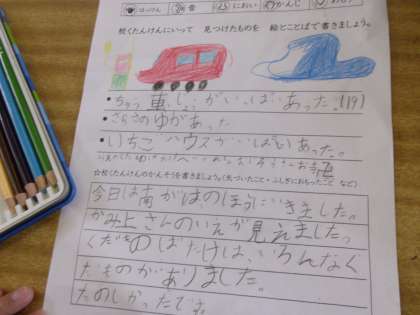 はっけん 音 におい かんじ
校くたんけんにいって 見つけたものを 絵とことばで書きましょう。
・ちゅう車じょうがいっぱいあった。(19)
・さらさのゆがあった
・いちごハウスがいっぱいあった。
☆校くたんけんのかんそうを書きましょう。(気づいたこと・ふしぎにおもったこと など)
今日は南がはのほうにいきました。
かみ上さんのいえが見えました。
くだものばたけは、いろんなく
だものがありました。
たのしかったです。